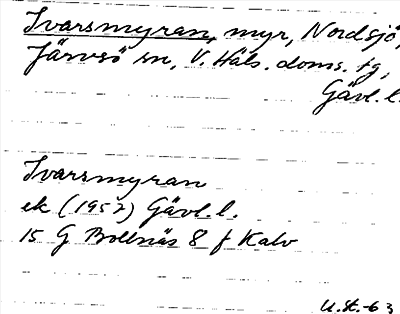 Ivarsmyran, myr, Nordsjö,
Järvsö sn, V. Häls. doms. tg,
Gävl. l.
Ivarsmyran
ek (1957) Gävl. l.
15 G Bollnäs 8 f Kalv
U. St. -63